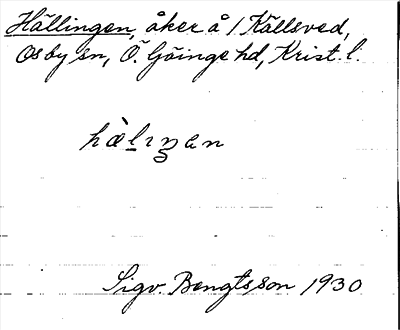 Hällingen, åker å 1 Källsved,
Osby sn, Ö. Göinge hd, Krist. l.
hæ̀lıŋan
Sigv. Bengtsson 1930